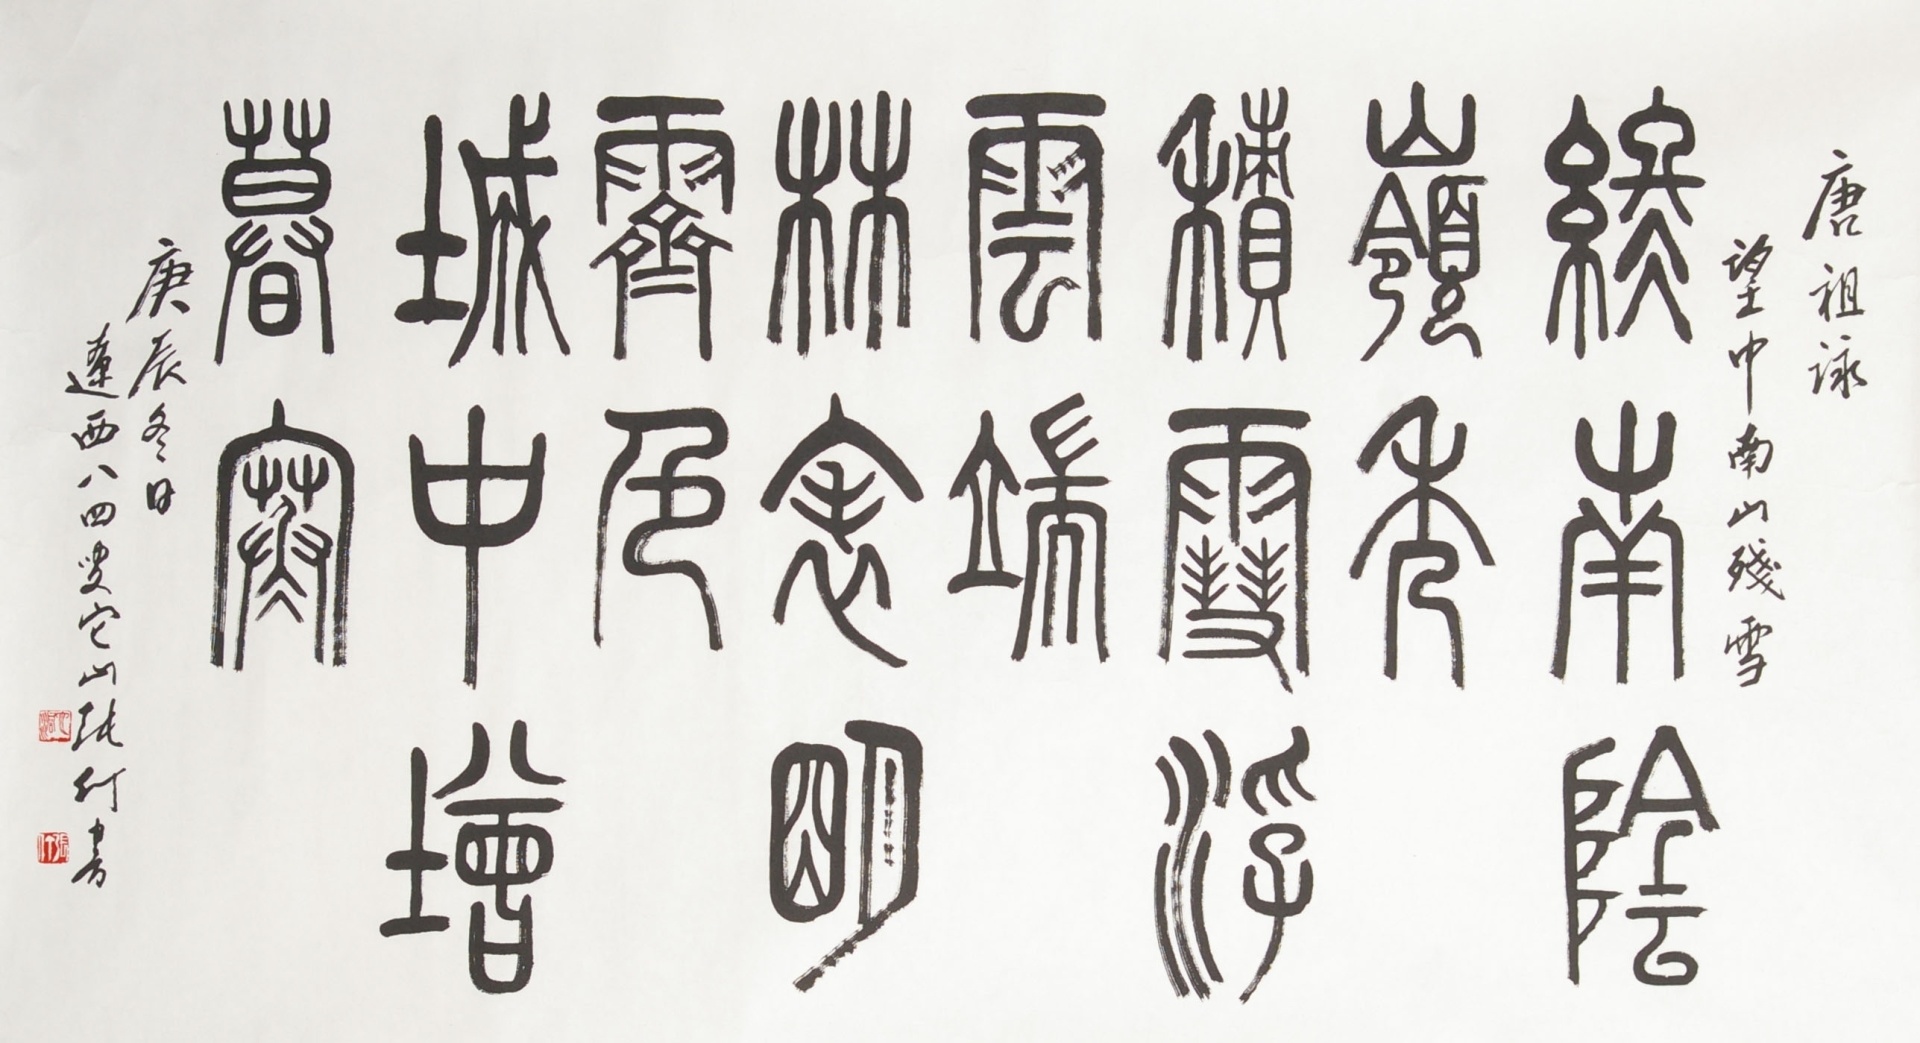 唐祖詠
望中南山殘雪
終南陰
嶺秀
積雪浮
雲端
林表明
霽色
城中增
暮寒
庚辰冬日
遼西八四叟它山張仃書
張仃